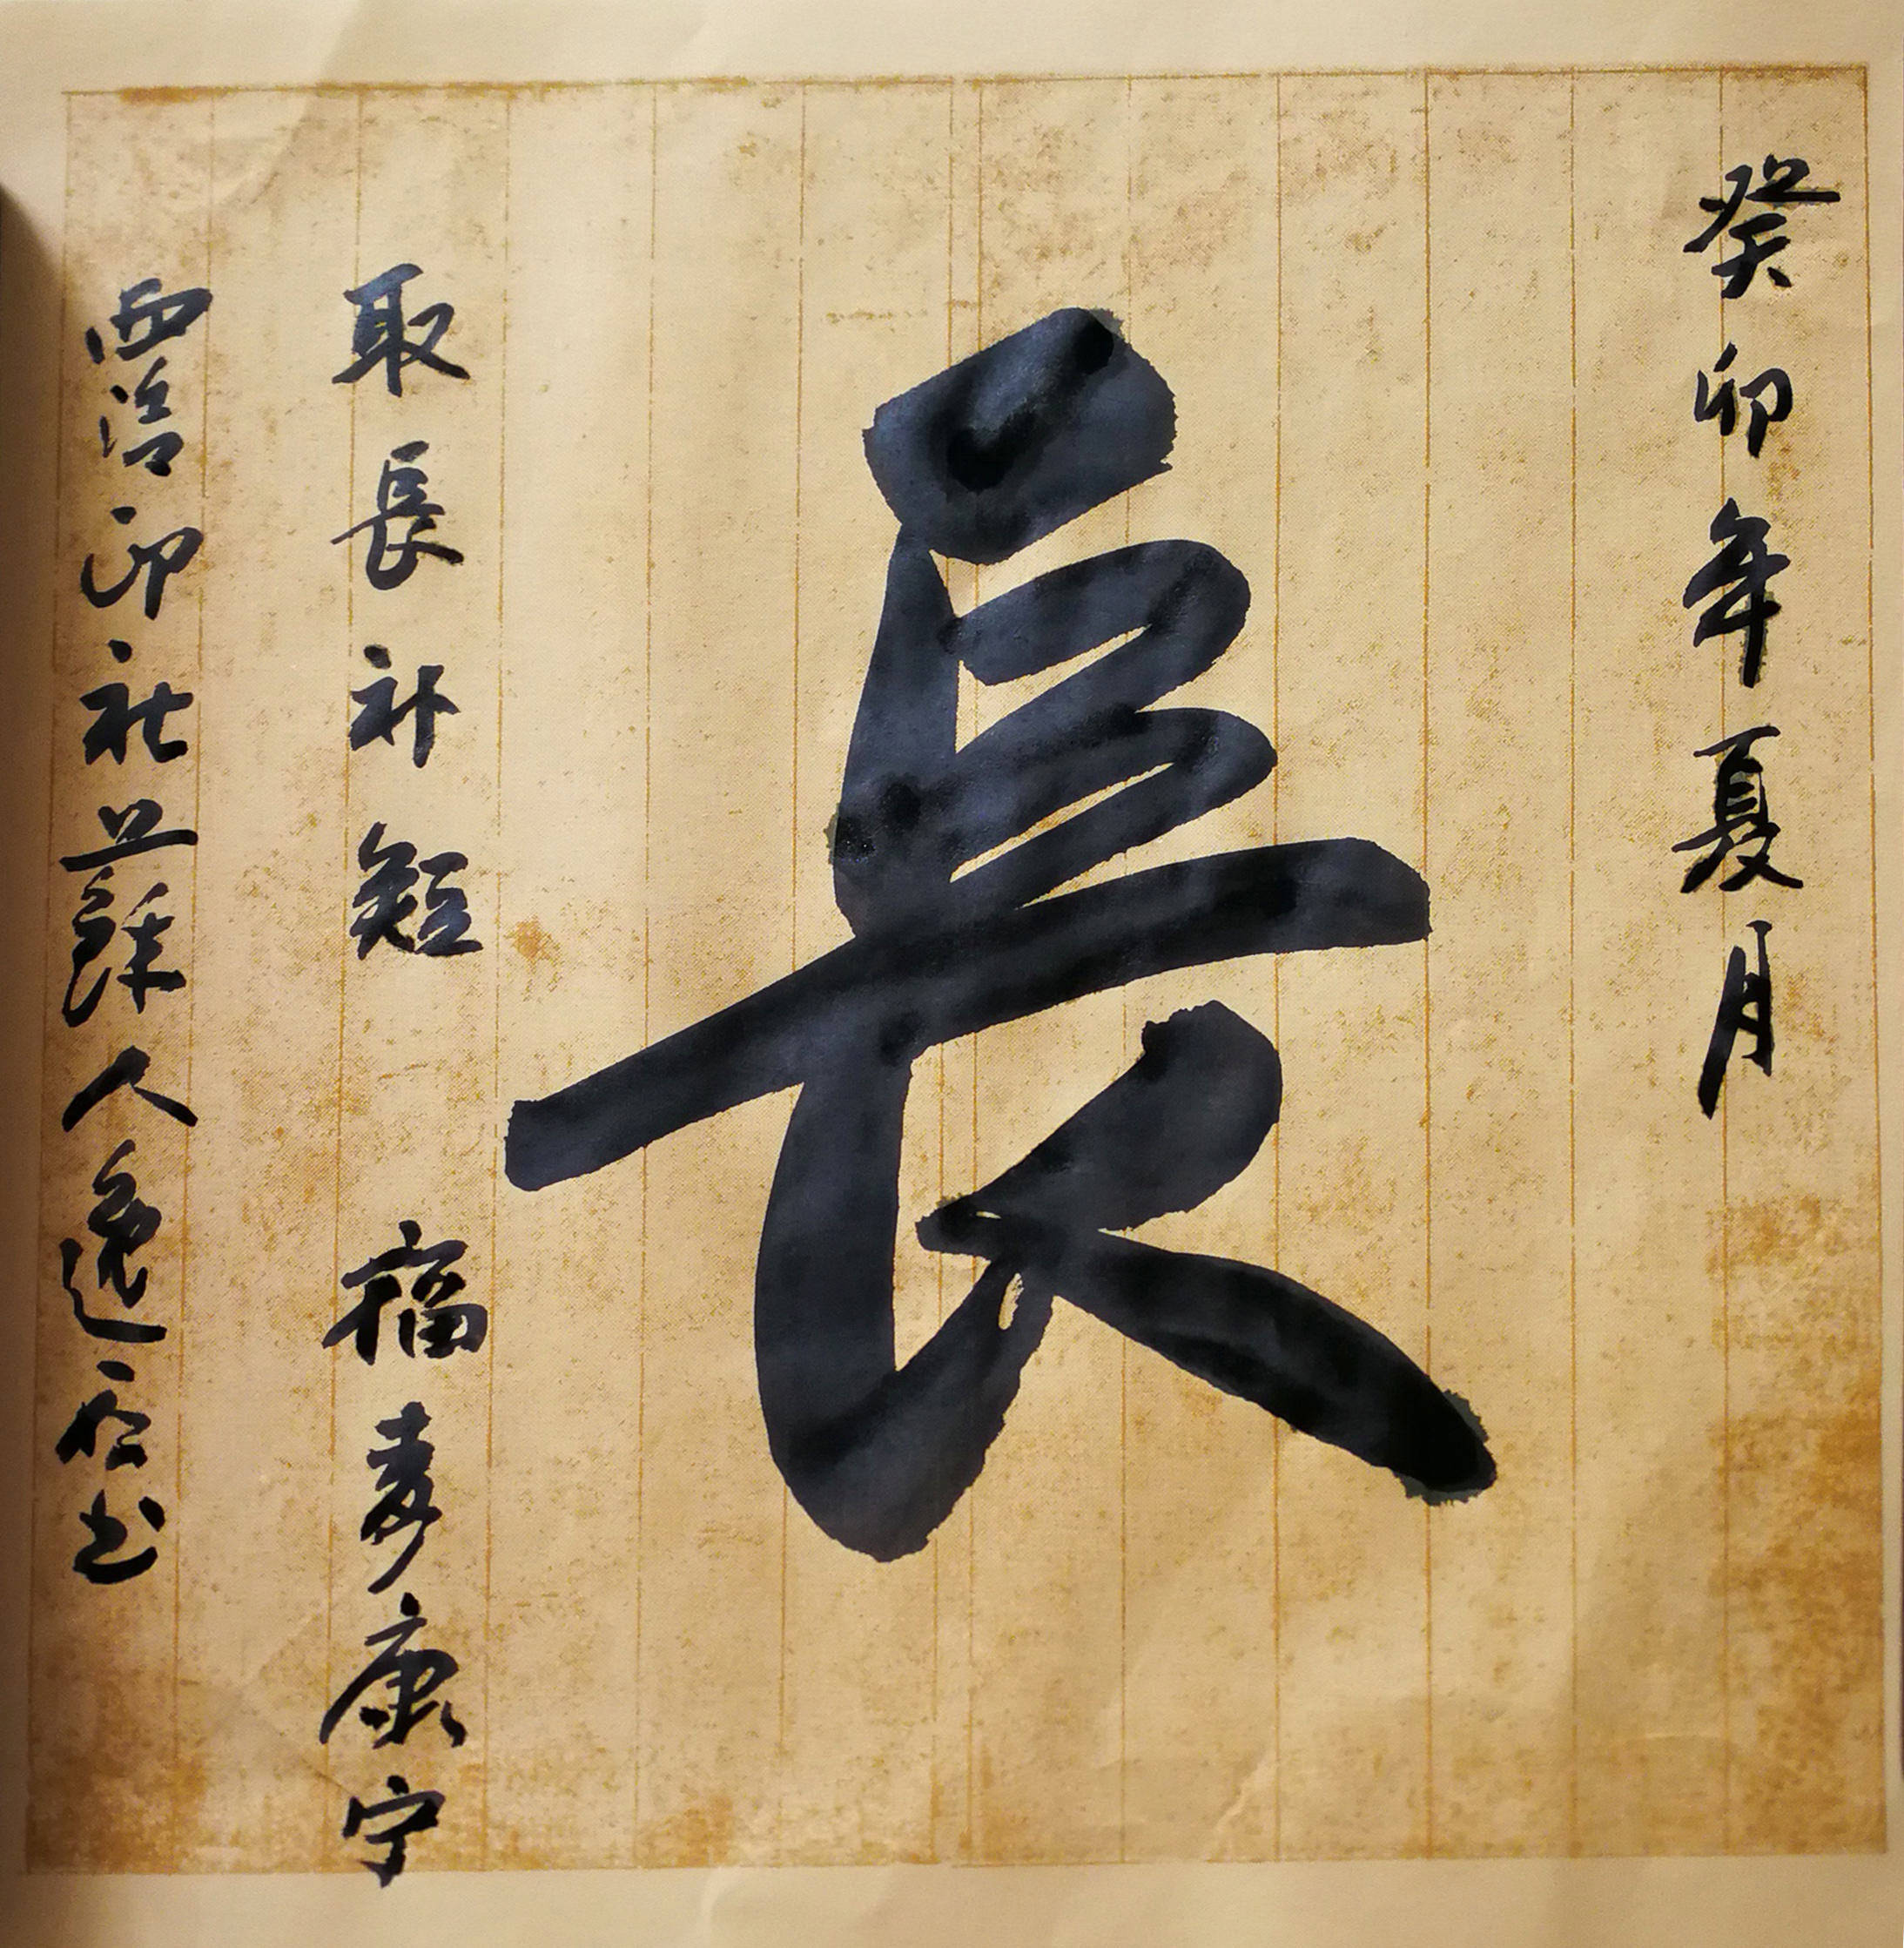 癸卯年夏月
長
取長补短 福寿康宁
西泠印社 人逸 书